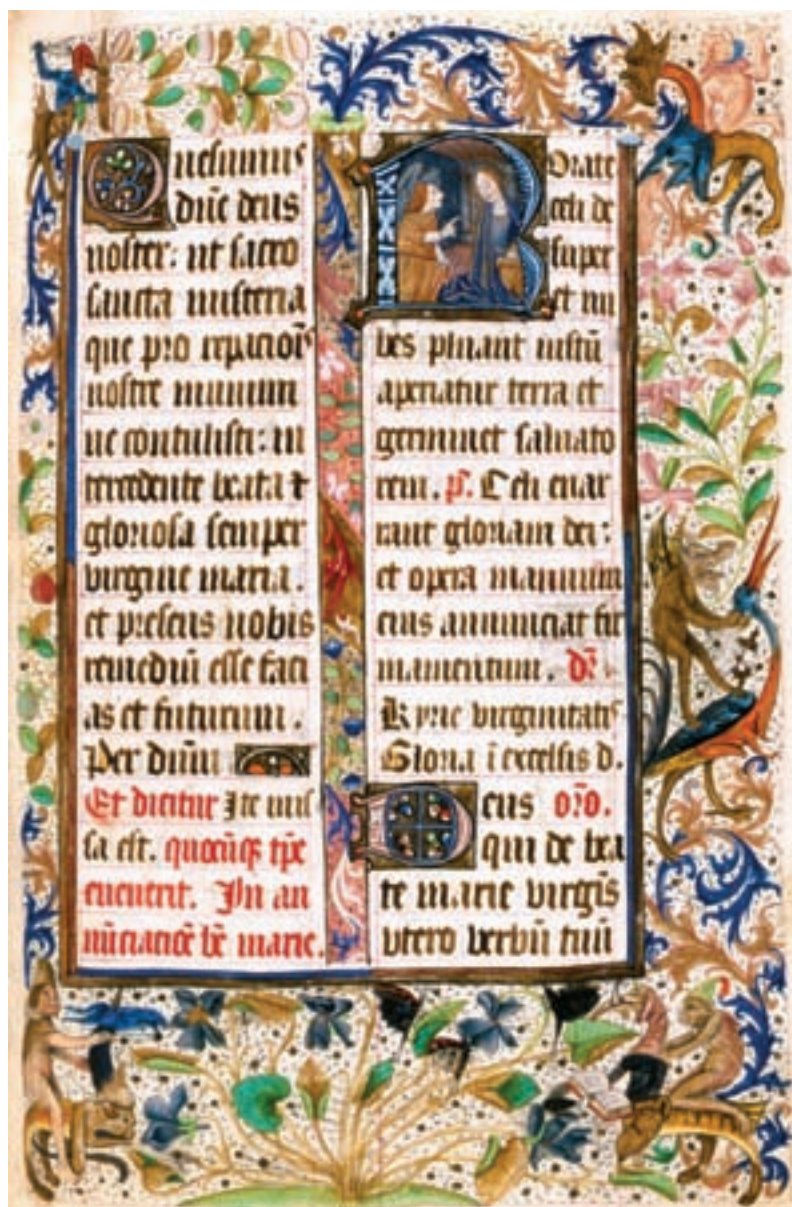 Quesumus
dn̄e deus
noster: ut sacro
sancta misteria
que pro reparacioīs
nostre munimi
ne contulisti: in
tercedente beata et
gloriosa semper
virgine maria.
et presens nobis
remediū esse faci
as et futurum.
Per dnūm
Et dicitur Ite mis
sa est. quocūq; tp̄e
euenerit. In an
nūciacōe bē marie.
Rorate
celi de
super
et nu
bes pluant iustū
aperiatur terra et
germinet saluato
rem. ps. Celi enar
rant gloriam dei:
et opera manuum
eius annunciat fir
mamentum.
Kyrie virginitatis
Gloria ī excelsis d.
Deus or̄o.
qui de bea
te marie virgīs
vtero verbū tuū